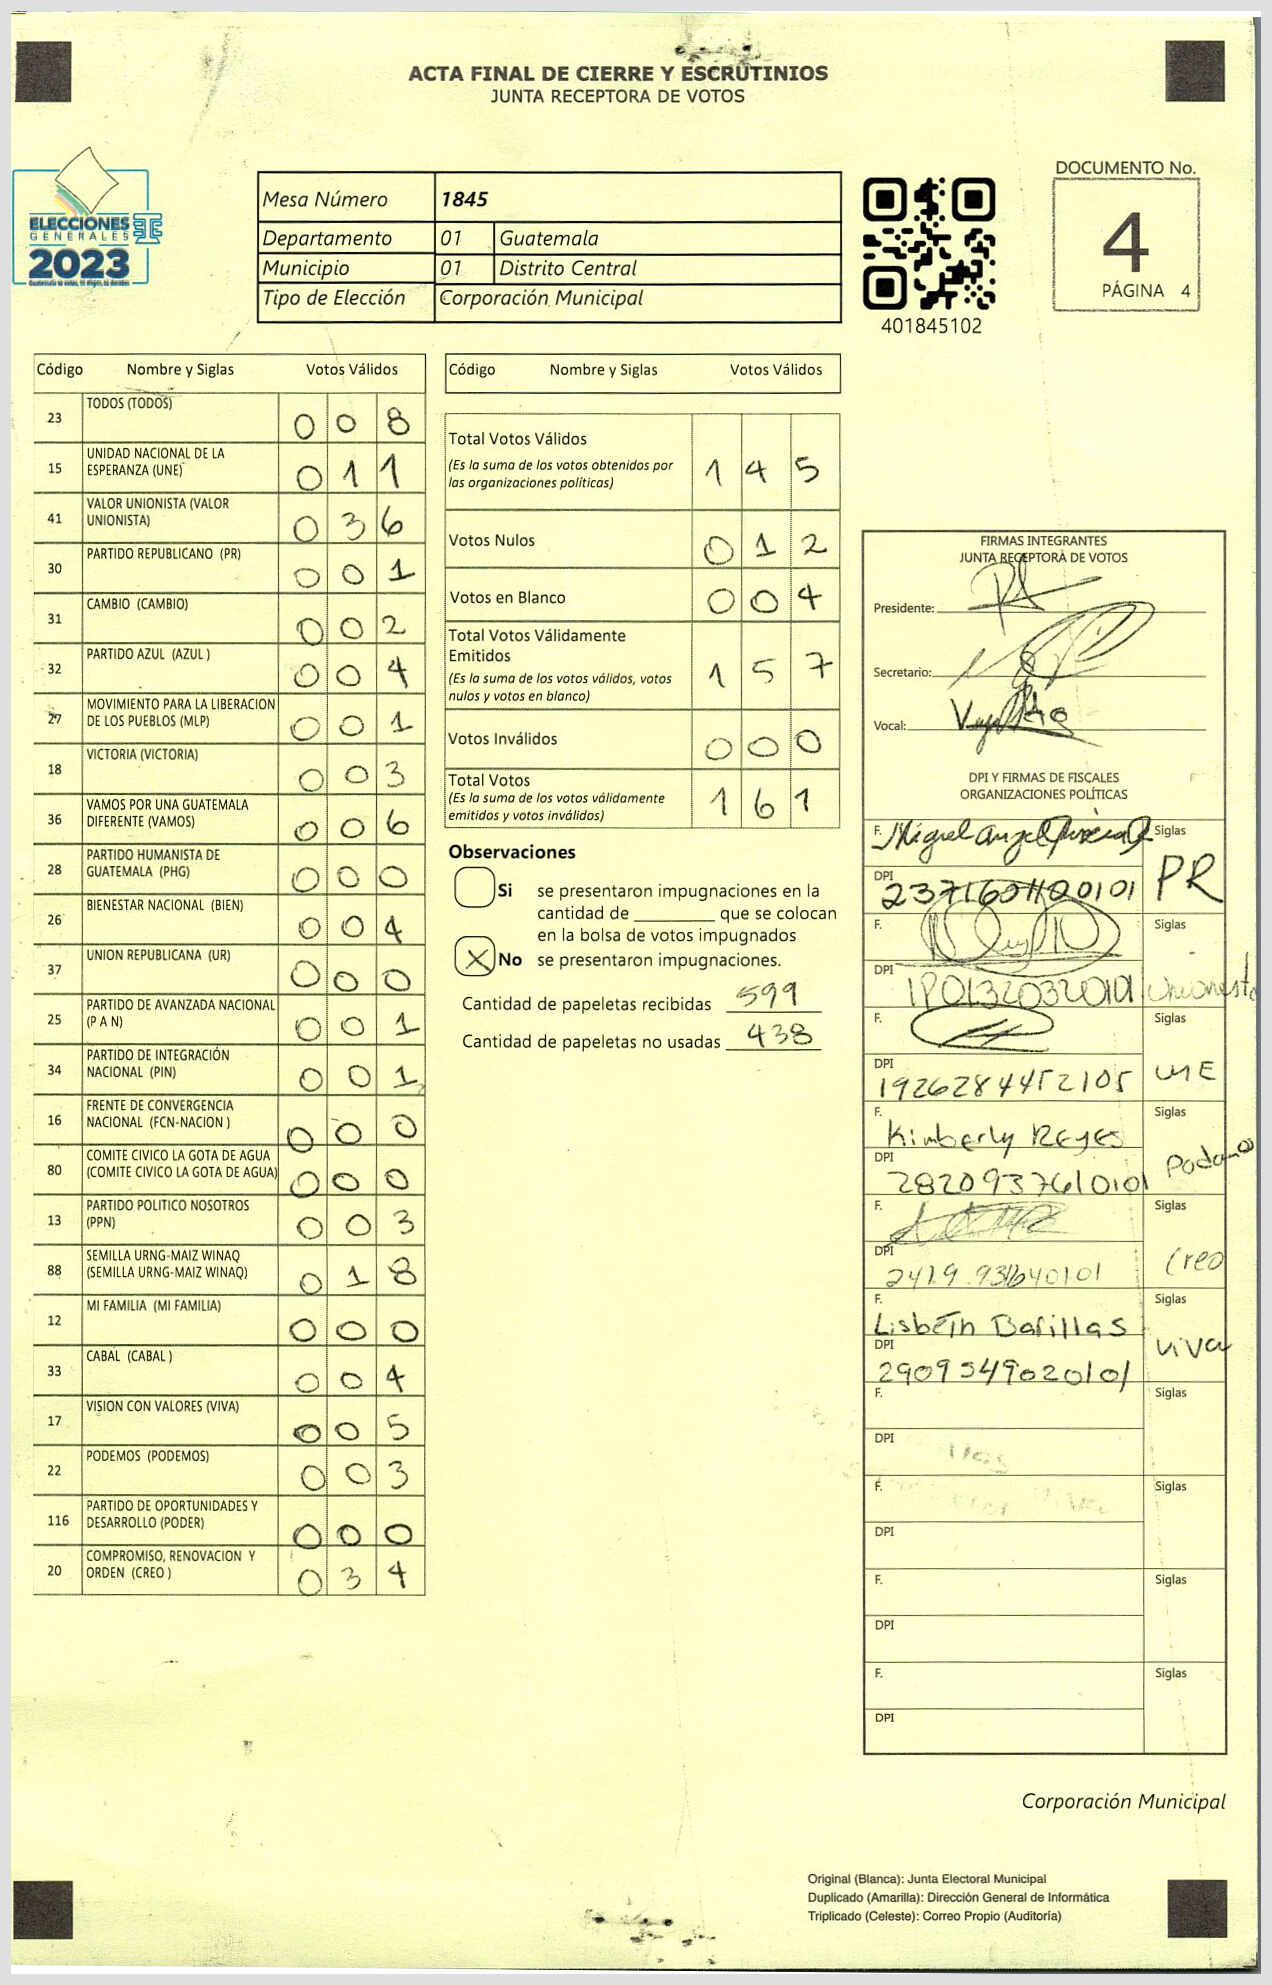 ACTA FINAL DE CIERRE Y ESCRUTINIOS
JUNTA RECEPTORA DE VOTOS
ELECCIONES
GENERALES
2023
Mesa Número 1845
Departamento 01 Guatemala
Municipio 01 Distrito Central
Tipo de Elección Corporación Municipal
401845102
DOCUMENTO No.
4
PÁGINA 4
Código Nombre y Siglas Votos Válidos
23 TODOS (TODOS) 0 0 8
15 UNIDAD NACIONAL DE LA ESPERANZA (UNE) 0 1 1
41 VALOR UNIONISTA (VALOR UNIONISTA) 0 3 6
30 PARTIDO REPUBLICANO (PR) 0 0 1
31 CAMBIO (CAMBIO) 0 0 2
32 PARTIDO AZUL (AZUL ) 0 0 4
27 MOVIMIENTO PARA LA LIBERACION DE LOS PUEBLOS (MLP) 0 0 1
18 VICTORIA (VICTORIA) 0 0 3
36 VAMOS POR UNA GUATEMALA DIFERENTE (VAMOS) 0 0 6
28 PARTIDO HUMANISTA DE GUATEMALA (PHG) 0 0 0
26 BIENESTAR NACIONAL (BIEN) 0 0 4
37 UNION REPUBLICANA (UR) 0 0 0
25 PARTIDO DE AVANZADA NACIONAL (P A N) 0 0 1
34 PARTIDO DE INTEGRACIÓN NACIONAL (PIN) 0 0 1
16 FRENTE DE CONVERGENCIA NACIONAL (FCN-NACION ) 0 0 0
80 COMITE CIVICO LA GOTA DE AGUA (COMITE CIVICO LA GOTA DE AGUA) 0 0 0
13 PARTIDO POLITICO NOSOTROS (PPN) 0 0 3
88 SEMILLA URNG-MAIZ WINAQ (SEMILLA URNG-MAIZ WINAQ) 0 1 8
12 MI FAMILIA (MI FAMILIA) 0 0 0
33 CABAL (CABAL ) 0 0 4
17 VISION CON VALORES (VIVA) 0 0 5
22 PODEMOS (PODEMOS) 0 0 3
116 PARTIDO DE OPORTUNIDADES Y DESARROLLO (PODER) 0 0 0
20 COMPROMISO, RENOVACION Y ORDEN (CREO ) 0 3 4
Código Nombre y Siglas Votos Válidos
Total Votos Válidos 1 4 5
(Es la suma de los votos obtenidos por
las organizaciones políticas)
Votos Nulos 0 1 2
Votos en Blanco 0 0 4
Total Votos Válidamente
Emitidos 1 5 7
(Es la suma de los votos válidos, votos
nulos y votos en blanco)
Votos Inválidos 0 0 0
Total Votos 1 6 1
(Es la suma de los votos válidamente
emitidos y votos inválidos)
Observaciones
Si se presentaron impugnaciones en la
cantidad de ________ que se colocan
en la bolsa de votos impugnados
X No se presentaron impugnaciones.
Cantidad de papeletas recibidas 599
Cantidad de papeletas no usadas 438
FIRMAS INTEGRANTES
JUNTA RECEPTORA DE VOTOS
Presidente:
Secretario:
Vocal:
DPI Y FIRMAS DE FISCALES
ORGANIZACIONES POLÍTICAS
F. Miguel Angel Siglas
DPI PR
F. Siglas
DPI Unionista
F. Siglas
DPI 1926284452105 UNE
F. Kimberly Reyes Siglas
DPI 2820937610101 Podemos
F. Siglas
DPI Creo
F. Lisbeth Barillas Siglas
DPI 2909549020101 Viva
F. Siglas
DPI
F. Siglas
DPI
F. Siglas
DPI
F. Siglas
DPI
Corporación Municipal
Original (Blanca): Junta Electoral Municipal
Duplicado (Amarilla): Dirección General de Informática
Triplicado (Celeste): Correo Propio (Auditoría)